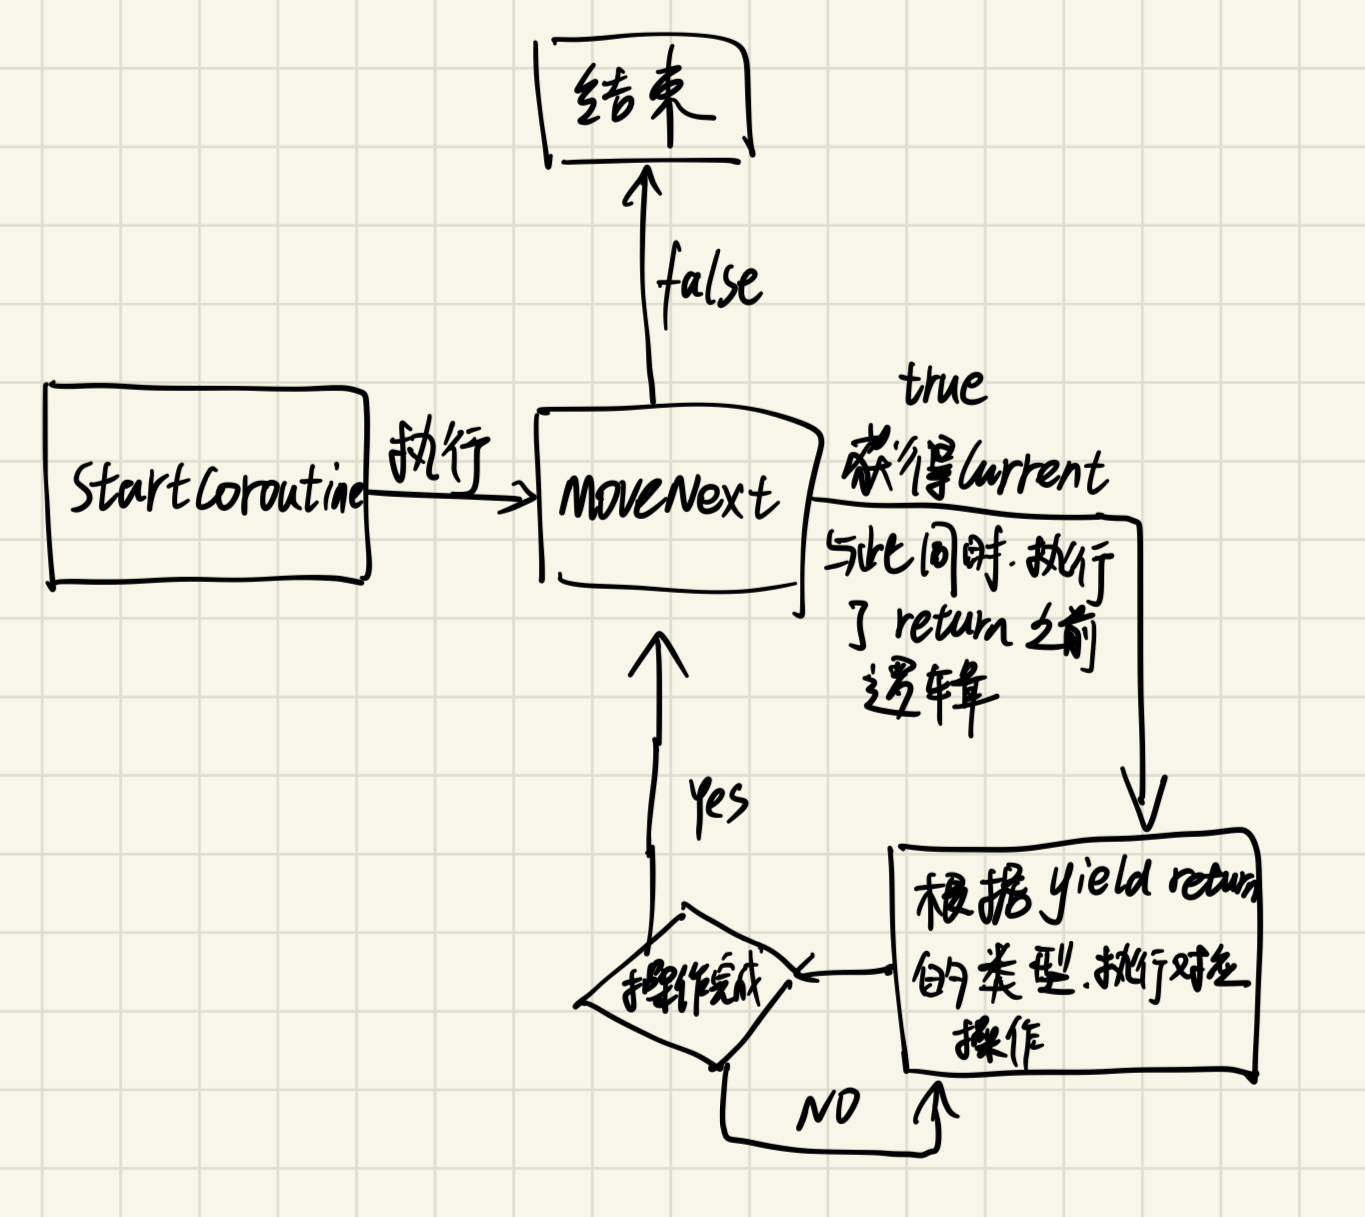 结束
false
StartCoroutine
执行
MoveNext
true
获得Current
与此同时.执行
了 return 之前
逻辑
Yes
根据 yield return
的类型.执行对应
操作
操作完成
NO